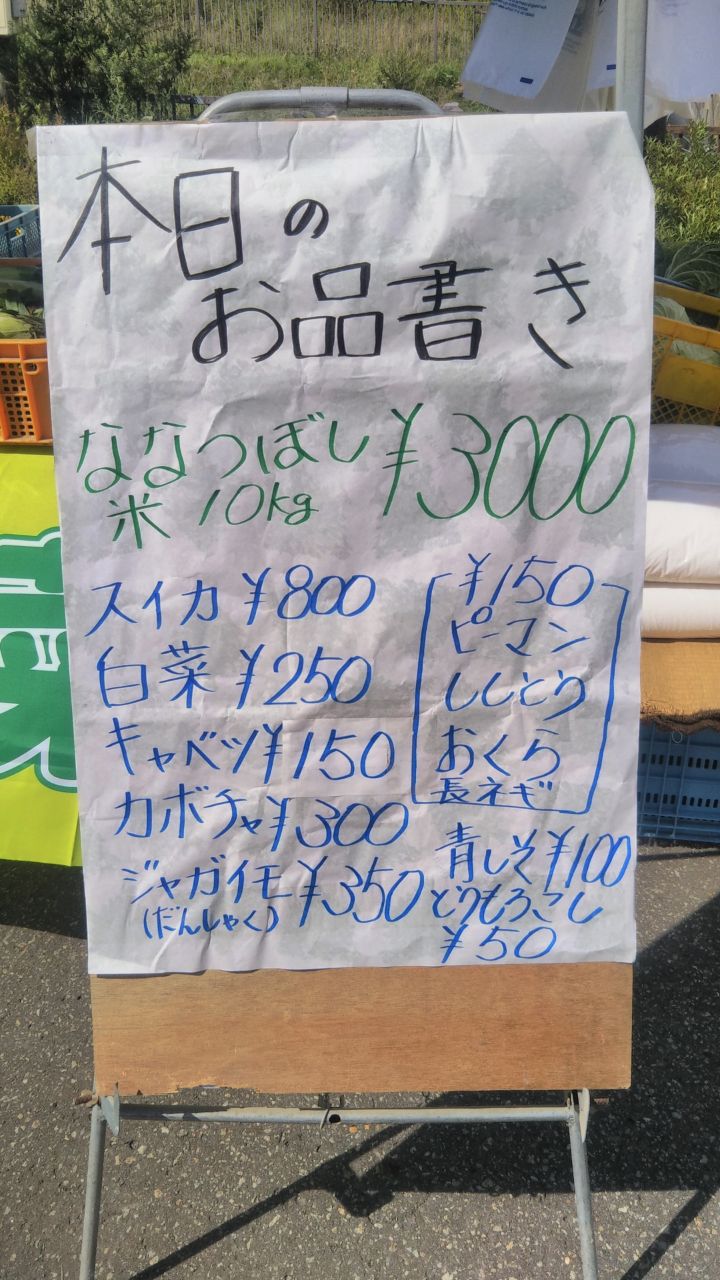 本日の
お品書き
ななつぼし ¥3000
米 10kg
スイカ ¥800
白菜 ¥250
キャベツ ¥150
カボチャ ¥300
ジャガイモ ¥350
(だんしゃく)
¥150
ピーマン
ししとう
おくら
長ネギ
青しそ ¥100
とうもろこし
¥50